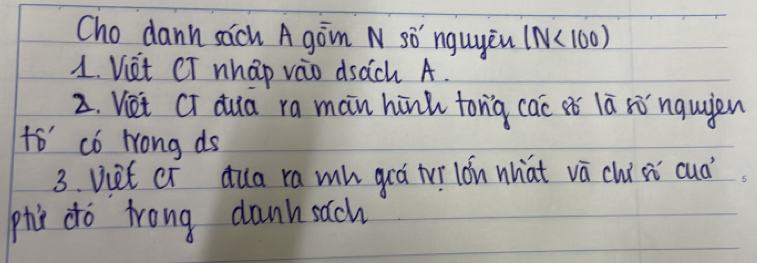 Cho danh sách A gồm N số nguyên (N<100)
1. Viết CT nhập vào dsách A.
2. Viết CT đưa ra màn hình tổng các số là số nguyên
tố có trong ds
3. Viết CT đưa ra mh giá trị lớn nhất và chỉ số của
ptử đó trong danh sách